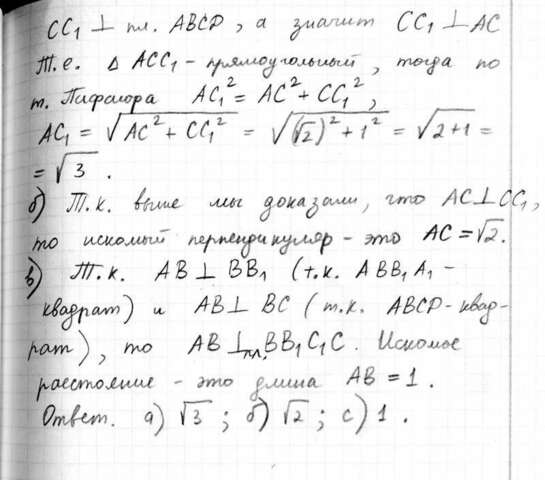 CC₁ ⊥ пл. ABCD, а значит CC₁ ⊥ AC
Т.е. Δ ACC₁ - прямоугольный, тогда по
т. Пифагора AC₁² = AC² + CC₁²,
AC₁ = √(AC² + CC₁²) = √((√2)² + 1²) = √(2+1) =
= √3 .
б) Т.к. выше мы доказали, что AC⊥CC₁,
то искомый перпендикуляр - это AC = √2.
в) Т.к. AB ⊥ BB₁ (т.к. ABB₁A₁ -
квадрат) и AB ⊥ BC (т.к. ABCD - квад-
рат), то AB ⊥ пл. BB₁C₁C. Искомое
расстояние - это длина AB = 1.
Ответ. а) √3 ; б) √2 ; с) 1 .